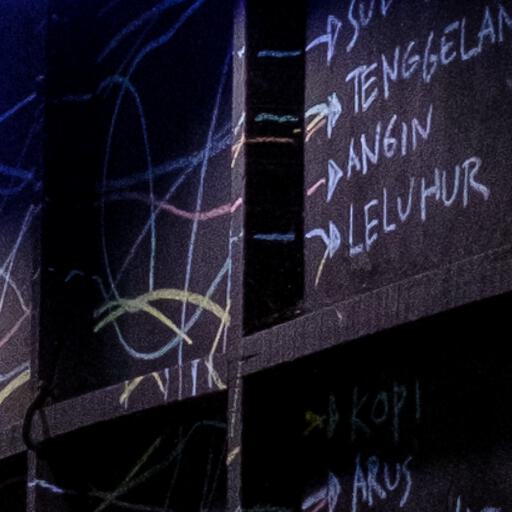 TENGGELAM
ANGIN
LELUHUR
KOPI
ARUS